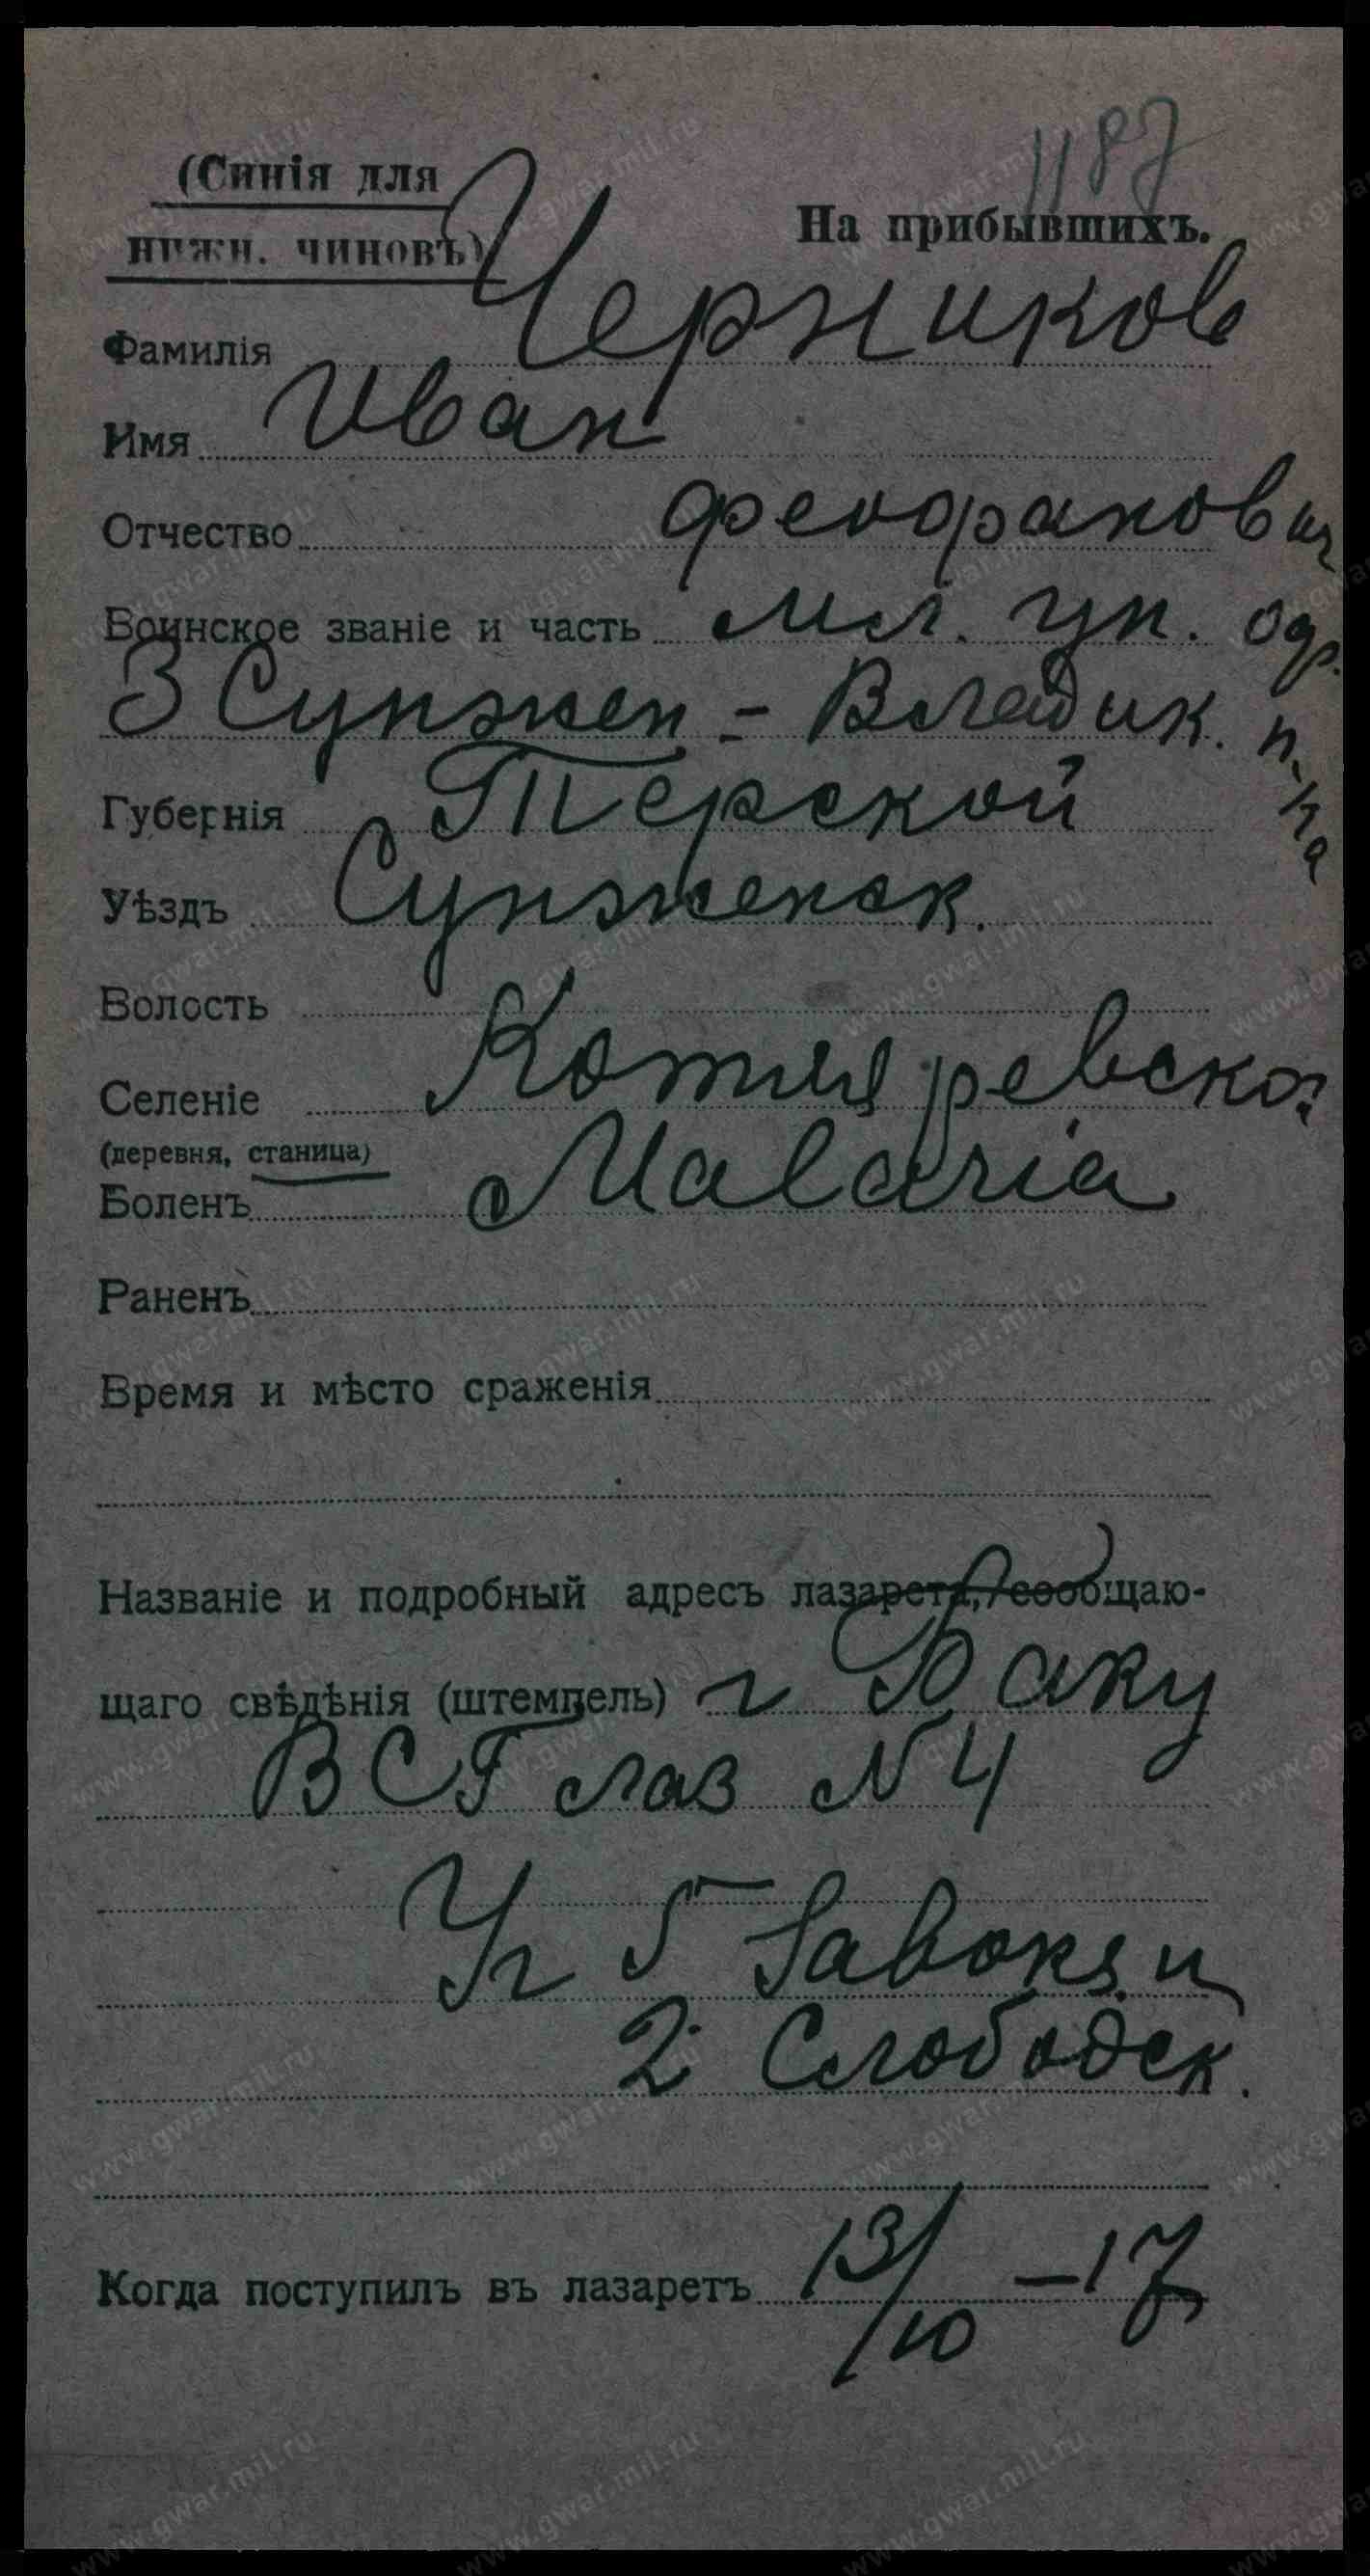 1187
(Синія для
нижн. чиновъ)
На прибывшихъ.
Фамилія Черников
Имя Иван
Отчество Феофанович
Воинское званіе и часть мл. ун. 
3 Сунжен - Владик. п-ка
Губернія Терской
Уѣздъ Сунженск.
Волость
Селеніе Котляревской
(деревня, станица)
Боленъ Malaria
Раненъ
Время и мѣсто сраженія
Названіе и подробный адресъ лазарета, сообщаю-
щаго свѣдѣнія (штемпель) г Баку
ВСГ лаз N 4
Уг 5 Завокз. и
2 Слободск.
Когда поступилъ въ лазаретъ 13/10 - 17
www.gwar.mil.ru